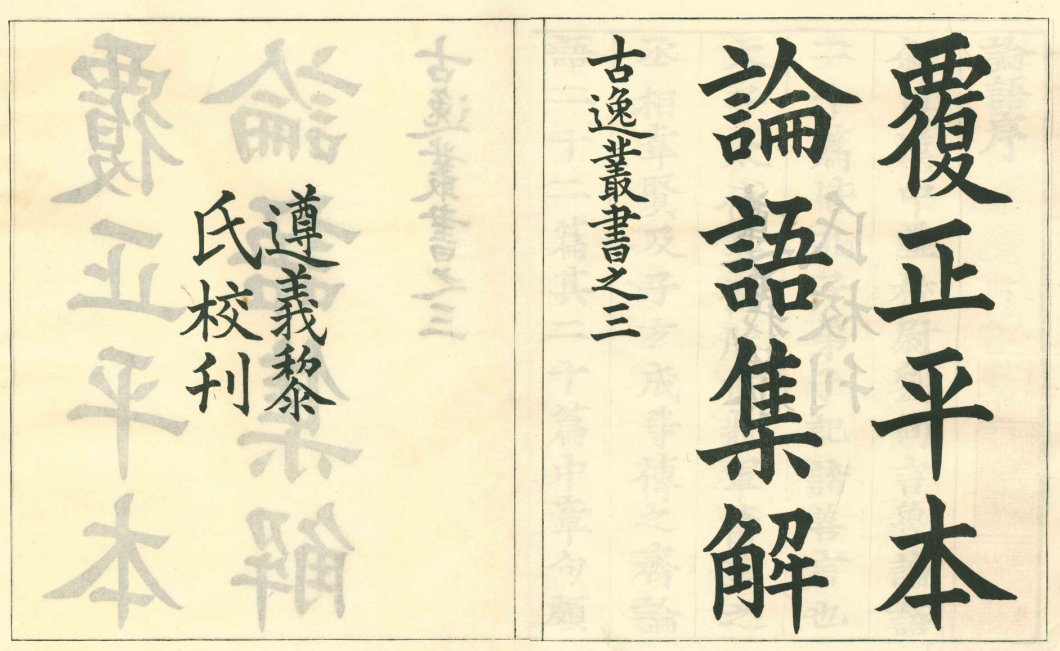 覆正平本
論語集解
古逸叢書之三
遵義黎
氏校刊